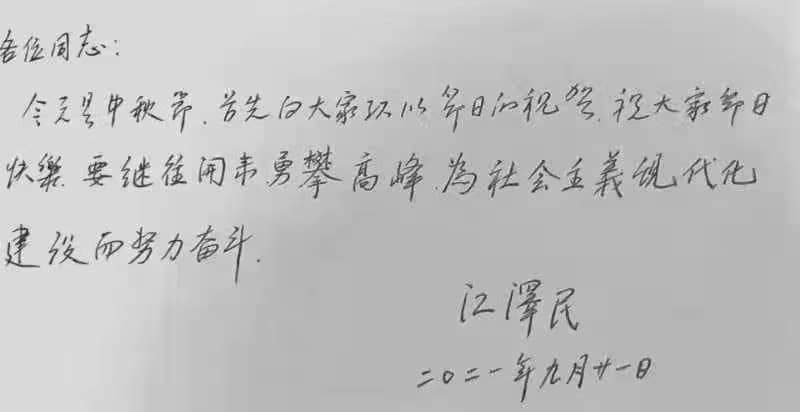 各位同志：
今天是中秋节.首先向大家致以节日的祝贺.祝大家节日
快樂.要继往开来勇攀高峰.為社会主義现代化
建设而努力奋斗.
江澤民
二〇二一年九月廿一日